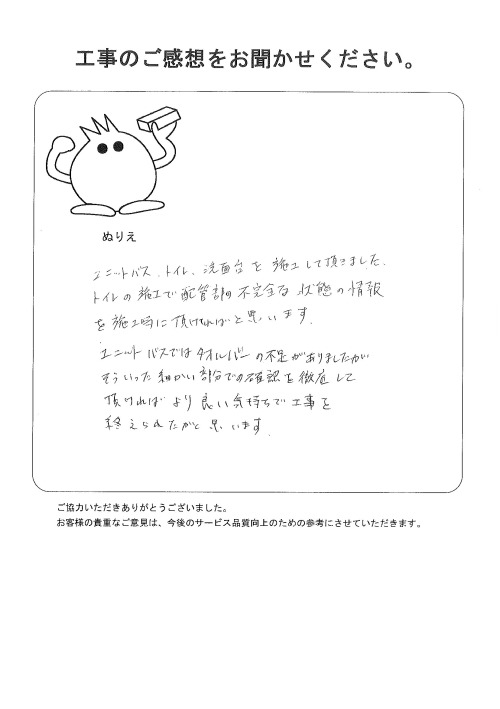 工事のご感想をお聞かせください。
ぬりえ
ユニットバス、トイレ、洗面台を施工して頂きました。
トイレの施工で配管部の不完全な状態の情報
を施工時に頂ければと思います。
ユニットバスではタオルバーの不足がありましたが
そういった細かい部分での確認を徹底して
頂ければより良い気持ちで工事を
終えられたかと思います。
ご協力いただきありがとうございました。
お客様の貴重なご意見は、今後のサービス品質向上のための参考にさせていただきます。